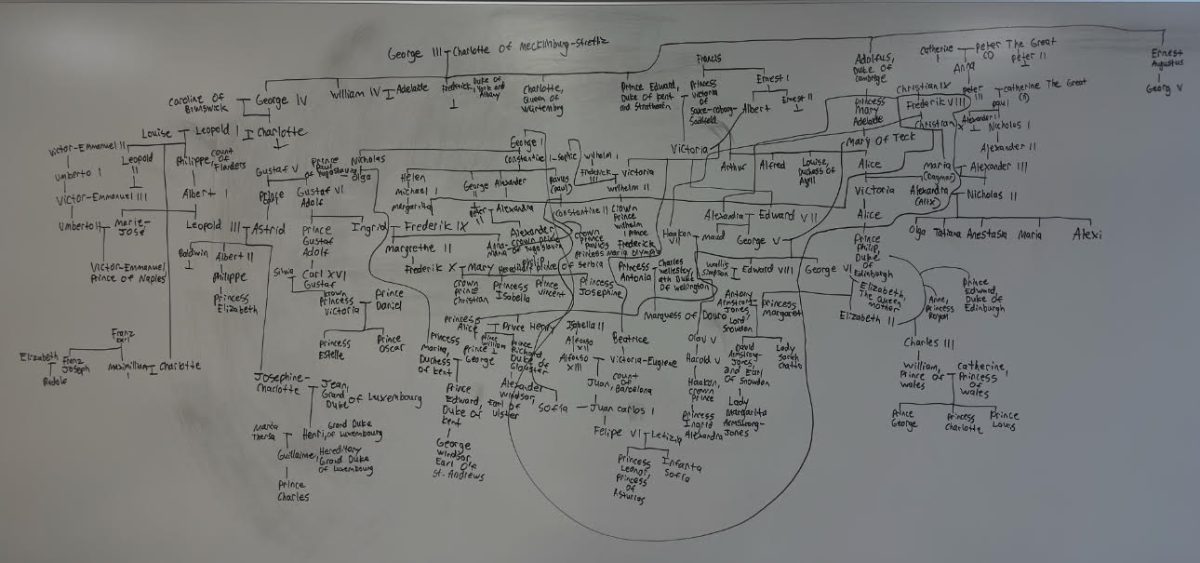 George III
Charlotte of Mecklinburg-Strelitz
Caroline of
Brunswick
George IV
William IV
Adelaide
Frederick, Duke of
York and
Albany
Charlotte,
Queen of
Prince Edward,
Duke of Kent
and Strathearn
Francis
Princess
Victoria
of
Ernest I
Albert
Ernest II
Adolfus,
Duke of
Cambridge
Princess
Mary
Adelaide
Mary of Teck
Catherine
Peter The Great
(I)
Peter II
Anna
Peter
III
Catherine The Great
Paul
Christian IX
Frederik VIII
Christian
X
Alexander I
Nicholas I
Alexander II
Alexander III
Nicholas II
Ernest
Augustus
Georg V
Louise
Leopold I
Charlotte
Victor-Emmanuel II
Leopold
II
Philippe,
Count of
Flanders
Umberto I
Albert I
Victor-Emmanuel III
Umberto II
Marie-
José
Leopold III
Astrid
Victor-Emmanuel
Prince of Naples
Baldwin
Albert II
Philippe
Princess
Elizabeth
Gustaf V
Nicholas
Olga
Gustaf VI
Adolf
Ingrid
Prince
Gustaf
Adolf
Silvia
Carl XVI
Gustaf
Crown
Princess
Victoria
Prince
Daniel
Princess
Estelle
Prince
Oscar
George I
Constantine I
Sophie
Wilhelm I
Frederick
III
Victoria
Wilhelm II
Victoria
Arthur
Alfred
Louise,
Duchess of
Alice
Victoria
Alice
Prince
Philip,
Duke
of
Edinburgh
Maria
(Dagmar)
Alexandra
(Alix)
Olga
Tatiana
Anestasia
Maria
Alexi
Helen
Michael I
Margarita
George
Alexander
Peter
II
Alexandra
Pavlos
(Paul)
Constantine II
Crown
Prince
Wilhelm
Prince
Frederick
Frederik IX
Margrethe II
Frederik X
Mary
Crown
Prince
Christian
Princess
Isabella
Prince
Vincent
Princess
Josephine
Anne-
Marie
Alexander
Crown Prince
of Yugoslavia
Philip
Crown
Prince
Pavlos
Princess Maria Olympia
Haakon
VII
Maud
Alexandra
Edward VII
George V
Princess
Antonia
Charles
Wellesley,
9th Duke
of Wellington
Wallis
Simpson
Edward VIII
George VI
Elizabeth,
The Queen
Mother
Elizabeth II
Anne,
Princess
Royal
Prince
Edward,
Duke of
Edinburgh
Antony
Armstrong-
Jones,
Lord
Snowdon
Princess
Margaret
David
Armstrong-
Jones,
2nd Earl
of Snowdon
Lady
Sarah
Chatto
Lady
Margarita
Armstrong-
Jones
Marquess of Douro
Olav V
Harald V
Haakon,
Crown
Prince
Princess
Ingrid
Alexandra
Charles III
William,
Prince of
Wales
Catherine,
Princess
of
Wales
Prince
George
Princess
Charlotte
Prince
Louis
Franz
Karl
Elizabeth
Franz
Joseph
Rudolf
Maximilian
I
Charlotte
Josephine-
Charlotte
Jean,
Grand
Duke
of Luxembourg
Maria
Theresa
Henri,
Grand Duke
of Luxembourg
Guillaume,
Hereditary
Grand Duke
of Luxembourg
Prince
Charles
Princess
Alice
Prince Henry
Princess
Marina,
Duchess
of Kent
Prince
George
Prince
William
Prince
Richard,
Duke of
Gloucester
Prince
Edward,
Duke of
Kent
Alexander
Windsor,
Earl of
Ulster
George
Windsor,
Earl of
St. Andrews
Isabella II
Alfonso
XII
Alfonso
XIII
Beatrice
Victoria-Eugenie
Juan,
Count
of
Barcelona
Sofia
Juan Carlos I
Felipe VI
Letizia
Princess
Leonor,
Princess
of
Asturias
Infanta
Sofia